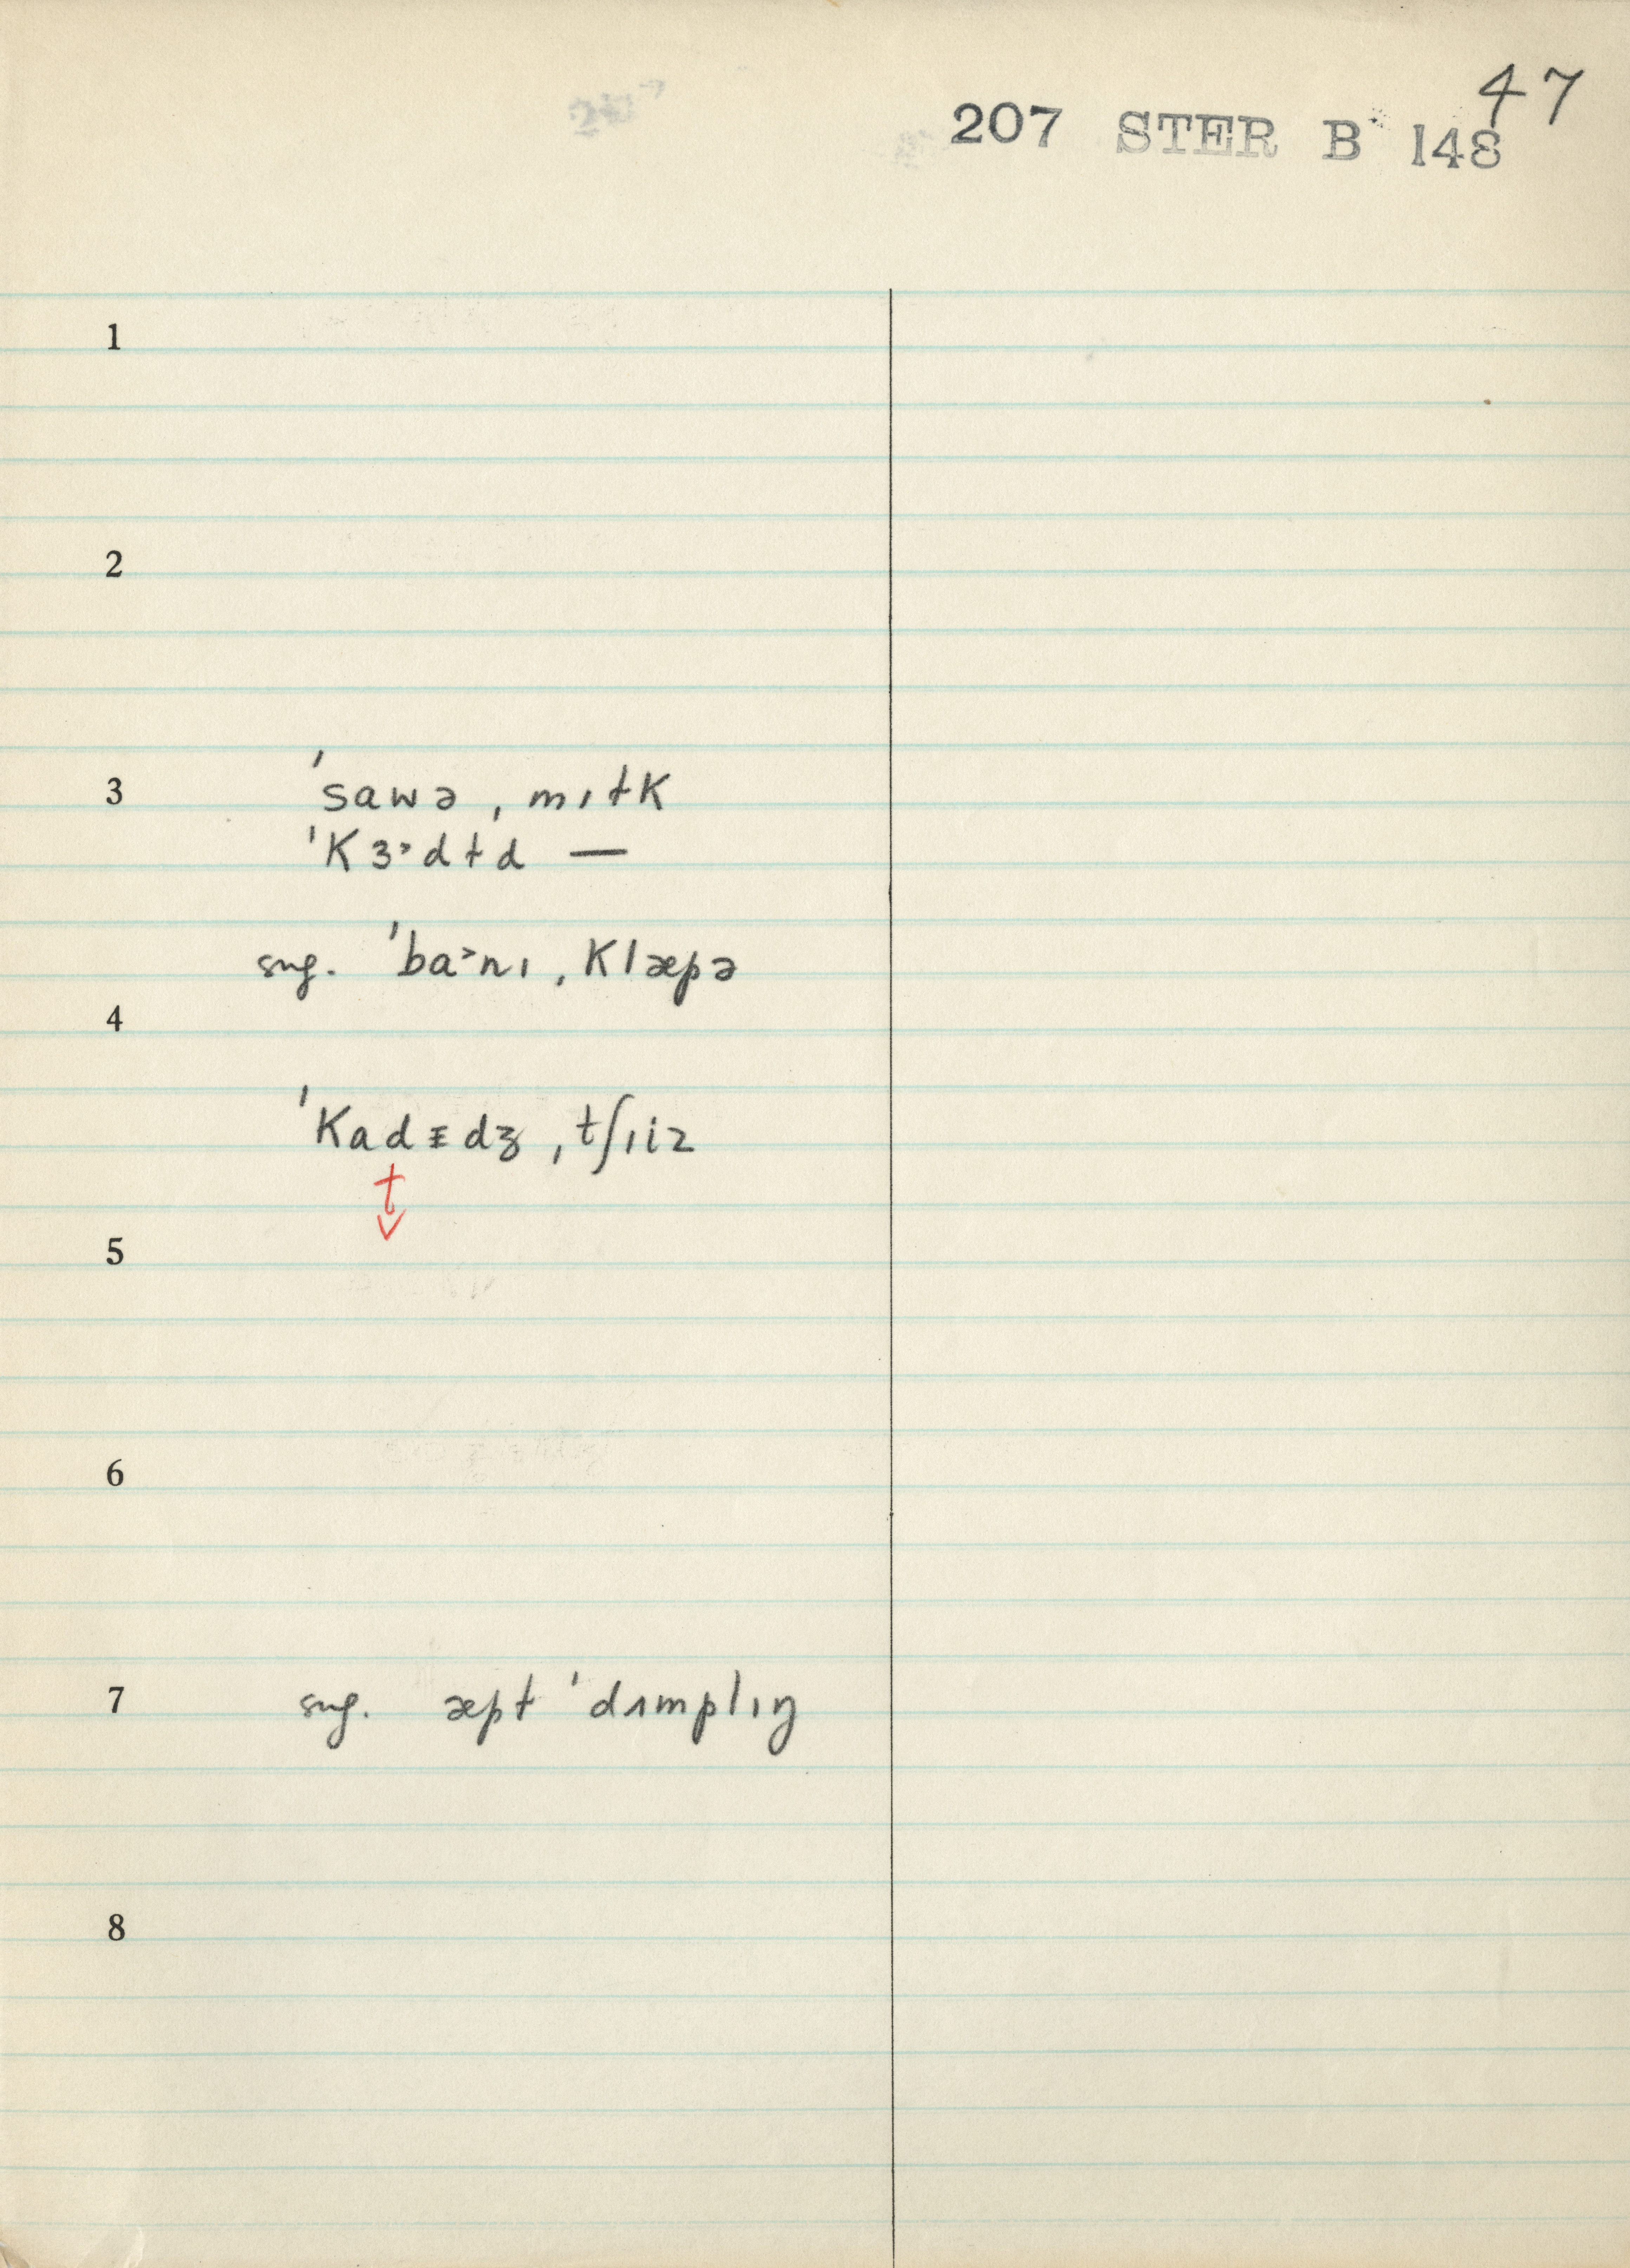 47
207 STER B 148
1
2
3 ˈsawə ˌmɪɫK
ˈKɜ˞dɫd —
sug. ˈba˞nɪ ˌKlæpə
4
ˈKadᵻdʒ ˌtʃɪiz
t̬
5
6
7 sug. æpɫ ˈdʌmplɪŋ
8